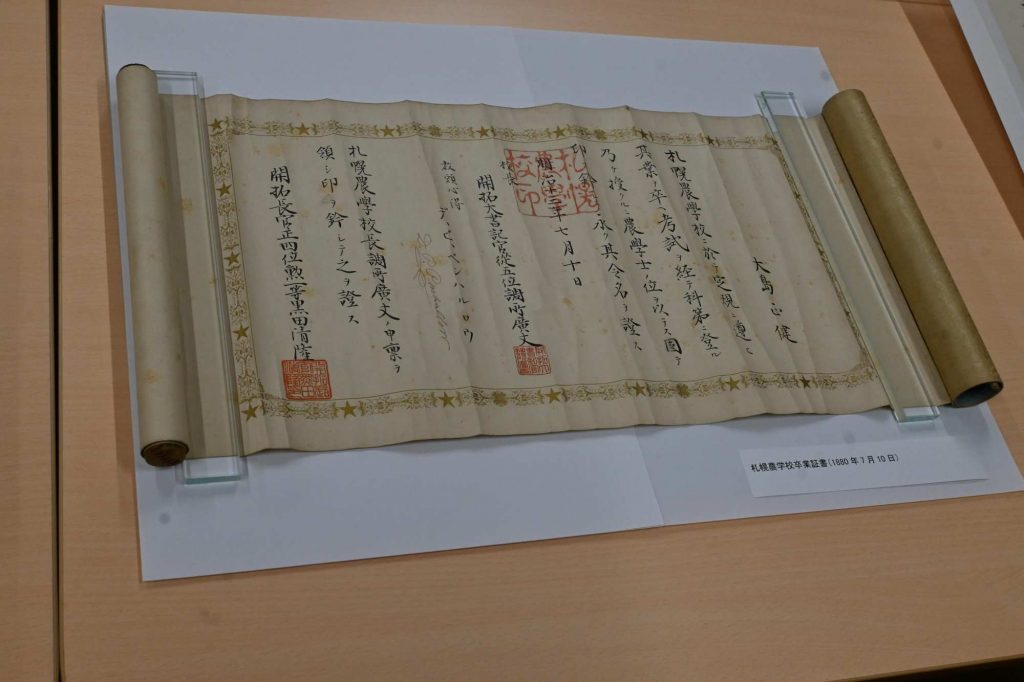 大島正健
札幌農學校ニ於テ定規ニ遵ヒ
其業ヲ卒ヘ考試ヲ経テ科第ニ登ル
乃ケ授ルニ農學士ノ位ヲ以テス因テ
印ヲ鈐シ永ク其令名ヲ證ス
明治十三年七月十日
札幌農學校印
校長
開拓大書記官從五位調所廣丈
教頭心得
デ、ピ、ペンハルロウ
札幌農學校長調所廣丈ノ申禀ヲ
領シ印ヲ鈐シテ之ヲ證ス
開拓長官正四位勲一等黒田清隆
札幌農学校卒業証書(1880年7月10日)